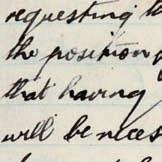 requesting th
the position
that having
will be neces